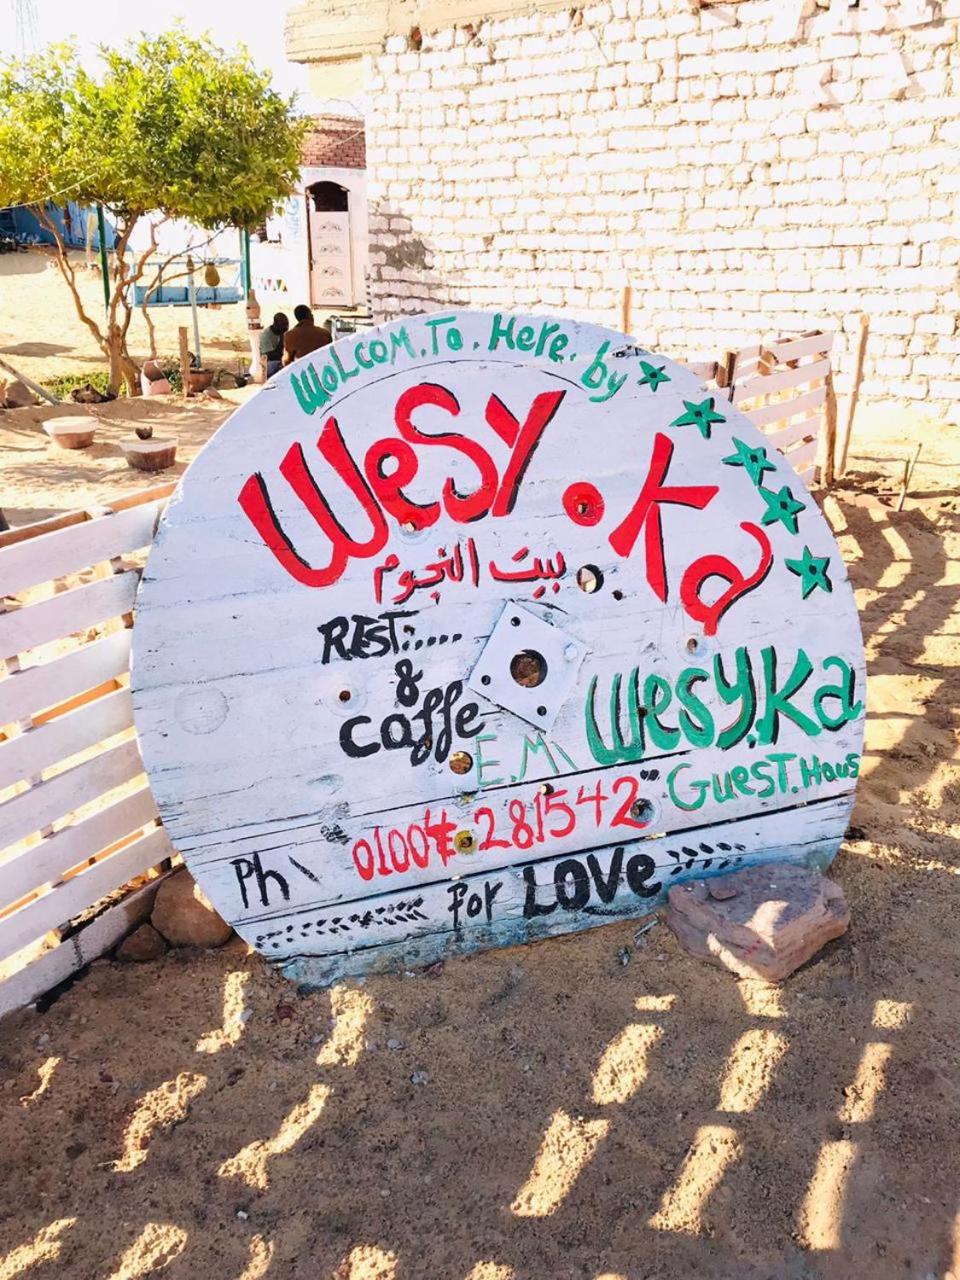 WoLcoM.To.Here.by
WeSy.Ka
بيت النجوم
REST:....
&
Caffe
E.M\ WesyKa
GuesT.Haus
Ph\ 01004281542
for LOVe